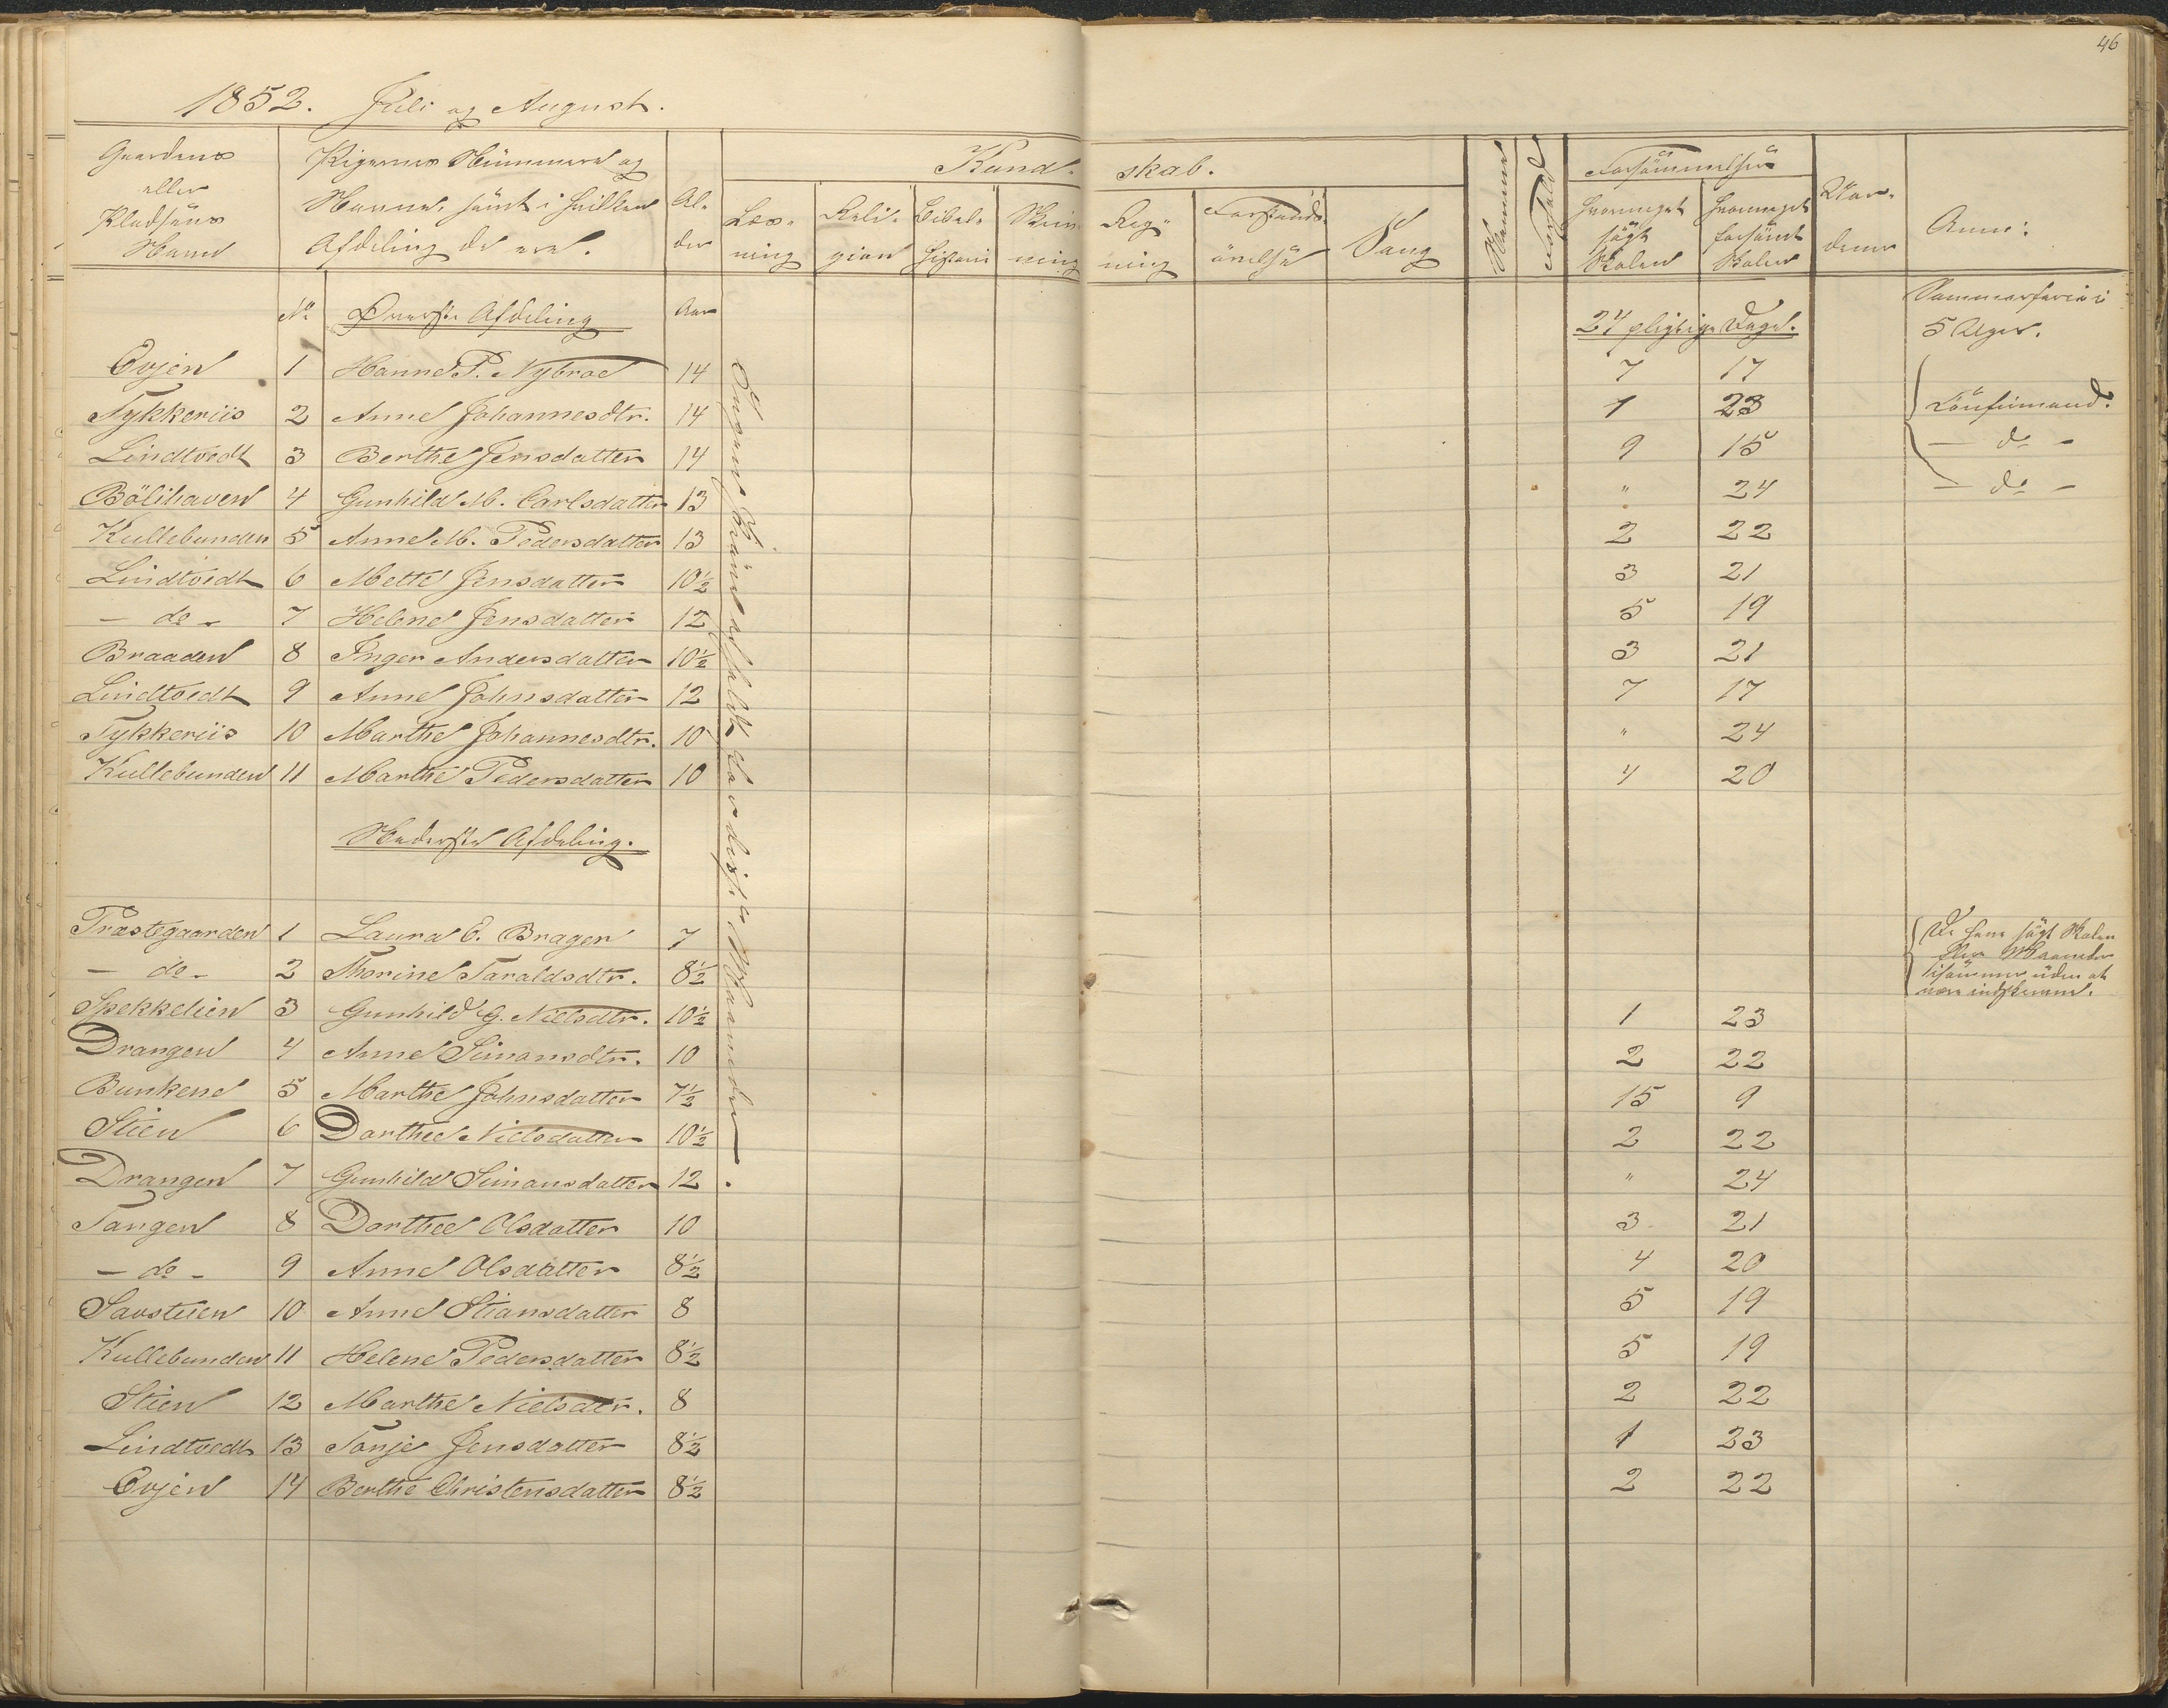 46
1852. Juli og August.
Gaardens eller Pladsens Navn | Pigernes Nummere og Navne, samt i hvilken Afdeling de ere. | Alder | Kundskab. | Forsömmelser | Anm:
Læsning | Religion | Bibelhistorie | Skrivning | Regning | Forstandsövelse | Sang | Nemme | hvormeget sögt Skolen | hvormeget forsömt Skolen
No | Øverste Afdeling | Aar | 24 pligtige Dage. | Sommerferie i 5 Uger.
Evjen 1 Hanne P. Nybroe 14 7 17
Tykkeriis 2 Anne Johannesdtr. 14 1 23 Confirmand.
Lindtvedt 3 Berthe Jensdatter 14 9 15 — do —
Bölihaven 4 Gunhild M. Carlsdatter 13 " 24 — do —
Kullebunden 5 Anne M. Pedersdatter 13 2 22
Lindtvedt 6 Mette Jensdatter 10½ 3 21
— do — 7 Helene Jensdatter 12 5 19
Braaden 8 Inger Andersdatter 10½ 3 21
Lindtvedt 9 Anne Johnsdatter 12 7 17
Tykkeriis 10 Marthe Johannesdtr. 10 " 24
Kullebunden 11 Marthe Pedersdatter 10 4 20
Nederste Afdeling.
Præstegaarden 1 Laura E. Brager 7
— do — 2 Thorine Taraldsdtr. 8½
De have sögt Skolen
flere Maaneder
isommer uden at
være indskrevne.
Spekkelien 3 Gunhild G. Nielsdtr. 10½ 1 23
Drangen 4 Anne Simonsdtr. 10 2 22
Bunkene 5 Marthe Johnsdatter 7½ 15 9
Stien 6 Darthee Nielsdatter 10½ 2 22
Drangen 7 Gunhild Simonsdatter 12 " 24
Tangen 8 Darthee Olsdatter 10 3 21
— do — 9 Anne Olsdatter 8½ 4 20
Savstuen 10 Anne Stiansdatter 8 5 19
Kullebunden 11 Helene Pedersdatter 8½ 5 19
Stien 12 Marthe Nielsdtr. 8 2 22
Lindtvedt 13 Tonje Jensdatter 8½ 1 23
Evjen 14 Berthe Christensdatter 8½ 2 22
Ingen Pröve afholdt for disse Maaneder.